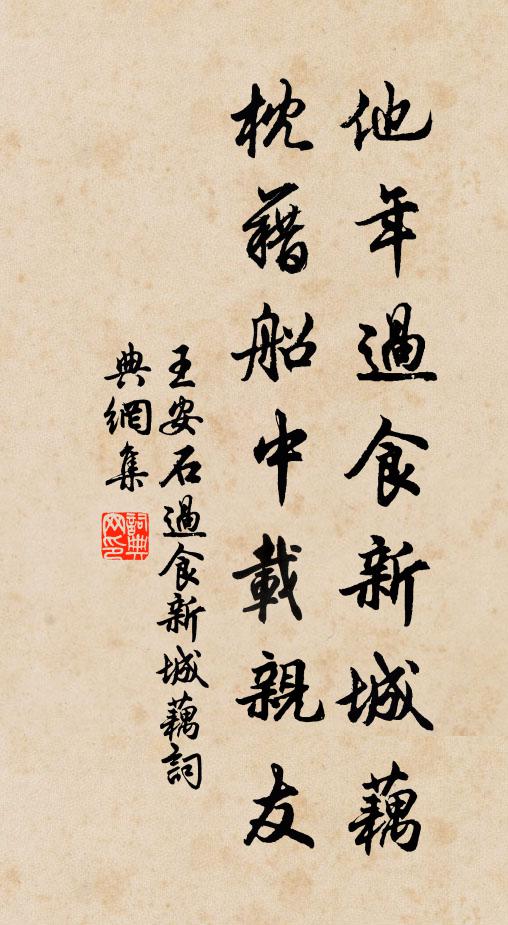 他年過食新城藕
枕藉船中載親友
王安石過食新城藕詞
典網集
詞典網印